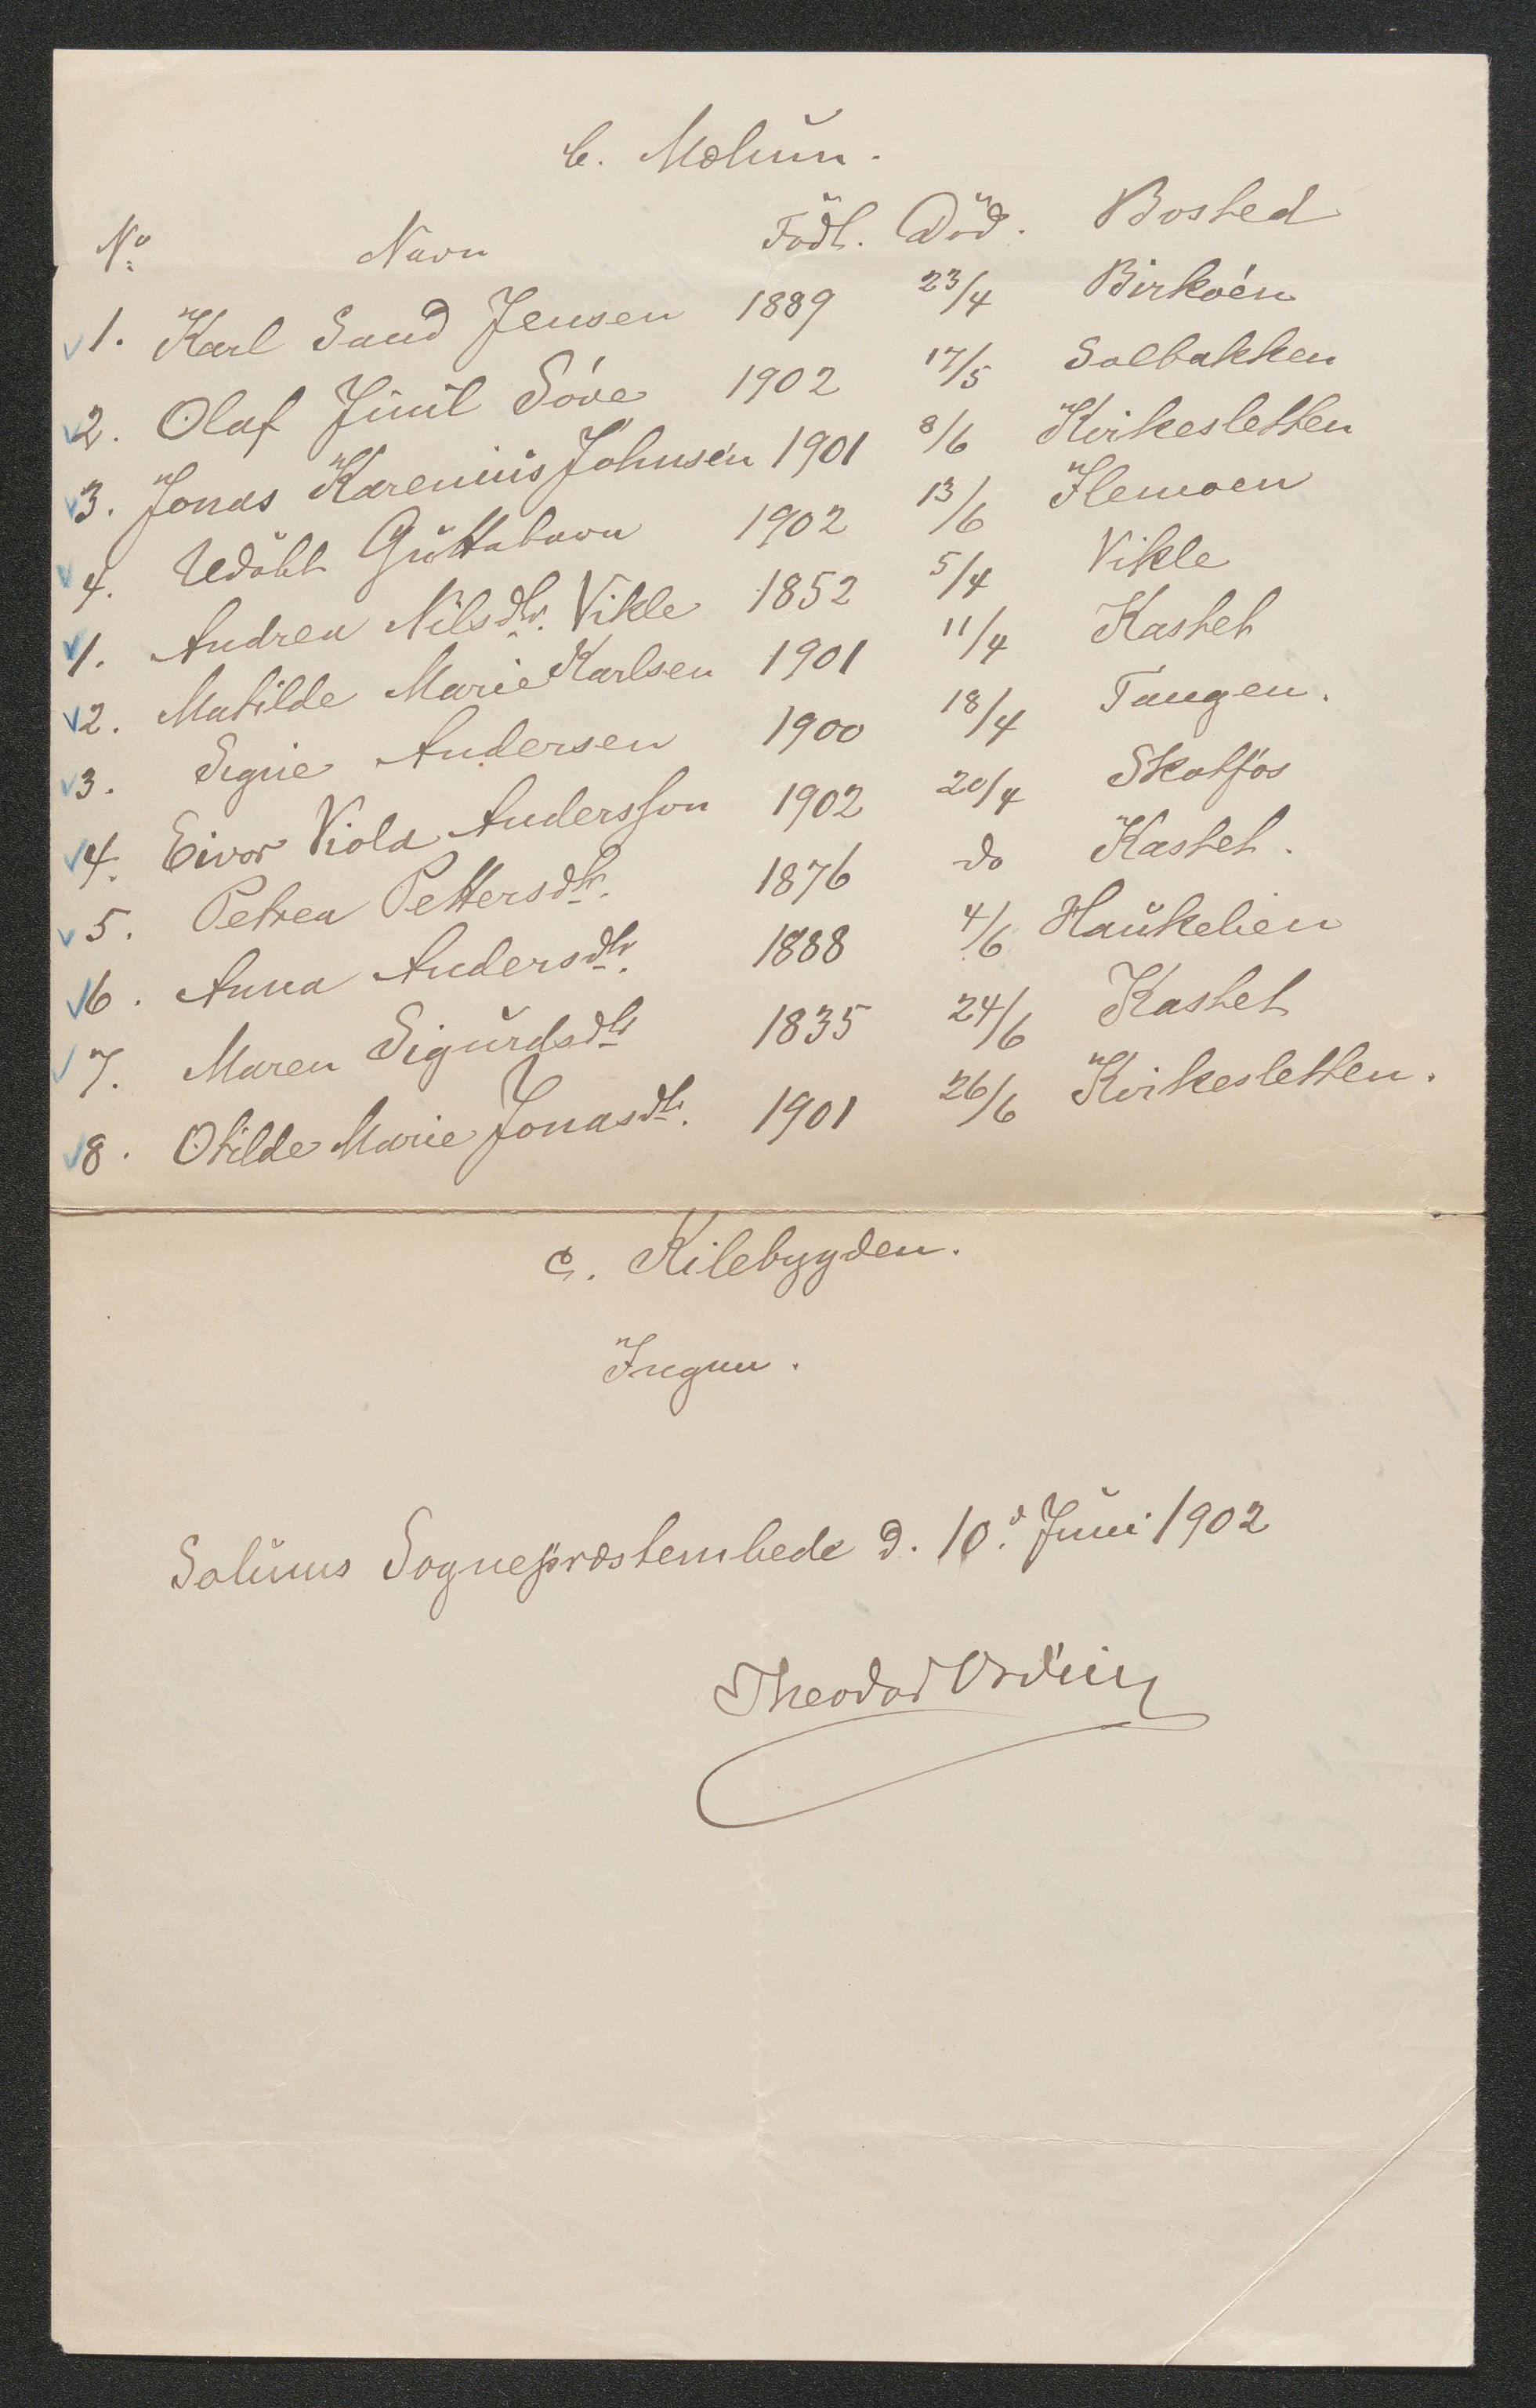 b. Melum.
No Navn Född. Död. Bosted
1. Karl Sand Jensen 1889 23/4 Birkoén
2. Olaf Juul Sóve 1902 17/5 Solbakken
3. Jonas Karenius Johnsen 1901 8/6 Kirkesletten
4. Udöbt Guttebarn 1902 13/6 Flemoen
1. Andrea Nilsdtr. Vikle 1852 5/4 Vikle
2. Matilde Marie Karlsen 1901 11/4 Kastet
3. Signe Andersen 1900 18/4 Tangen.
4. Eivor Viola Andersson 1902 20/4 Skotfos
5. Petrea Pettersdtr. 1876 do Kastet.
6. Anna Andersdtr. 1888 4/6 Haukelien
7. Maren Sigurdsdtr 1835 24/6 Kastet
8. Otilde Marie Jonasdtr. 1901 26/6 Kirkesletten.
c. Kilebygden.
Ingen.
Solums Sognepræstembede d. 10d. Juni 1902
Theodor Ording